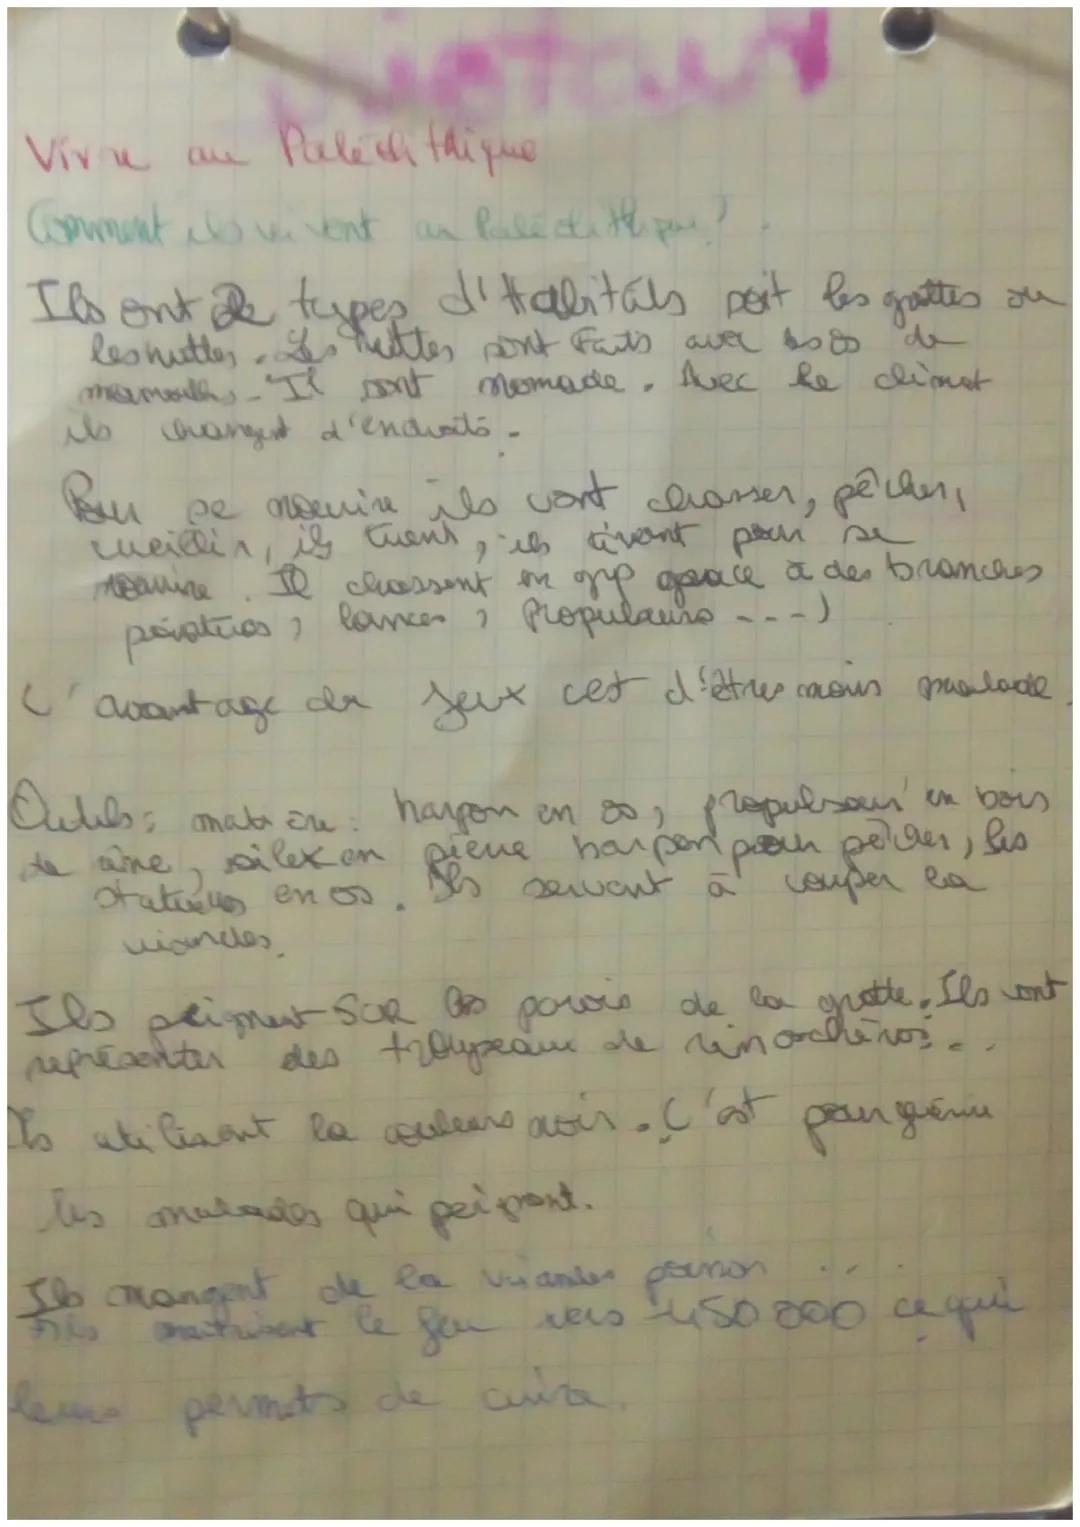 Histoire
Vivre au Paléolithique
Comment ils vivent au Paléolithique?
Ils ont 2 types d'Habitats soit les grottes ou
les huttes. Les huttes sont faits avec des os de
mamouths. Il sont nomade. Avec le climat
ils changent d'endroits.
Pour se nourire ils vont chasser, pêcher,
cueillir, ils tuent, ils pour se
nourire. Il chassent en grp grace à des branches
pointues, lances, Propulseurs ...)
L'avantage du feux cet d'êtres moins malade.
Outils: matière: harpon en os, propulseur en bois
de , silex en pierre harpon pour pêcher, les
statues en os. Ils servent à couper la
viandes.
Ils peignent sur les parois de la grotte. Ils vont
représenter des troupeaux de rinochéros...
Ils utilisent la couleurs noir. C'est pour guérire
les malades qui peignent.
Ils mangent de la viandes poisson ...
Ils maitrisent le feu vers -450 000 ce qui
leurs permets de cuire.